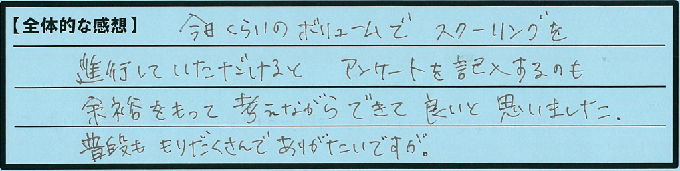 【全体的な感想】 今日くらいのボリュームで スクーリングを
進行していただけると アンケートを記入するのも
余裕をもって考えながらできて良いと思いました。
普段ももりだくさんでありがたいですが。